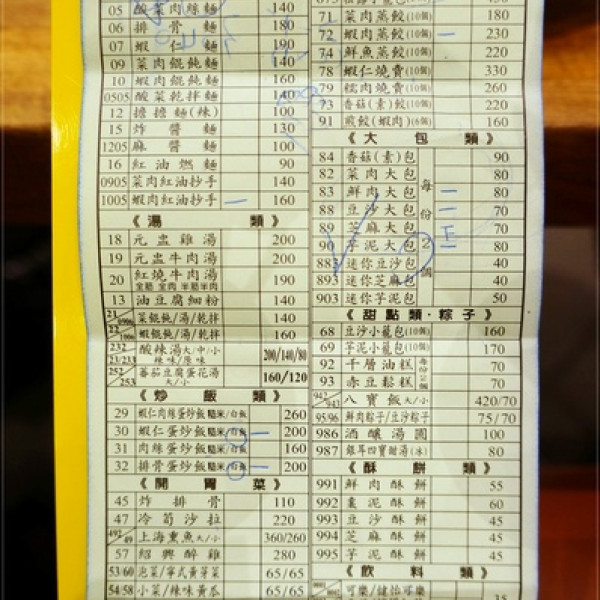 05 酸菜肉絲麵 140
06 排骨麵 180
07 蝦仁麵 190
09 菜肉餛飩麵 140
10 蝦肉餛飩麵 160
0505 酸菜乾拌麵 140
12 擔擔麵(辣) 100
15 炸醬麵 130
1205 麻醬麵 100
16 紅油燃麵 90
0905 菜肉紅油抄手 140
1005 蝦肉紅油抄手 160
《湯類》
18 元盅雞湯 200
19 元盅牛肉湯 200
20 紅燒牛肉湯 190
全筋 全肉 半筋半肉
13 油豆腐細粉 140
21/0906 菜餛飩/湯/乾拌 140
22/1006 蝦餛飩/湯/乾拌 160
232 酸辣湯大/中/小 200/140/80
23/233 辣味/原味
252/253 蕃茄豆腐蛋花湯 大/小 160/120
《炒飯類》
29 蝦仁肉絲蛋炒飯 糙米/白飯 260
30 蝦仁蛋炒飯 糙米/白飯 200
31 肉絲蛋炒飯 糙米/白飯 160
32 排骨蛋炒飯 糙米/白飯 200
《開胃菜》
45 炸排骨 110
47 冷筍沙拉 220
492/49 上海熏魚大/小 360/260
57 紹興醉雞 280
53/60 泡菜/寧式黃芽菜 65/65
54/58 小菜/辣味黃瓜 65/65
71 菜肉蒸餃(10個) 180
72 蝦肉蒸餃(10個) 230
74 鮮魚蒸餃(10個) 220
78 蝦仁燒賣(10個) 330
79 糯肉燒賣(10個) 260
73 香菇(素)餃(10個) 220
91 煎餃(蝦肉)(6個) 160
《大包類》
每份2個
84 香菇(素)包 90
82 菜肉大包 80
83 鮮肉大包 80
88 豆沙大包 70
89 芝麻大包 70
90 芋泥大包 80
883 迷你豆沙包 40
893 迷你芝麻包 40
903 迷你芋泥包 50
《甜點類·粽子》
68 豆沙小籠包(10個) 160
69 芋泥小籠包(10個) 170
92 千層油糕 每份2個 70
93 赤豆鬆糕 70
942/943 八寶飯大/小 420/70
95/96 鮮肉粽子/豆沙粽子 75/70
986 酒釀湯圓 100
987 銀耳四寶甜湯(冰) 80
《酥餅類》
991 鮮肉酥餅 55
992 棗泥酥餅 60
993 豆沙酥餅 45
994 芝麻酥餅 45
995 芋泥酥餅 45
《飲料類》
可樂/健怡可樂 35